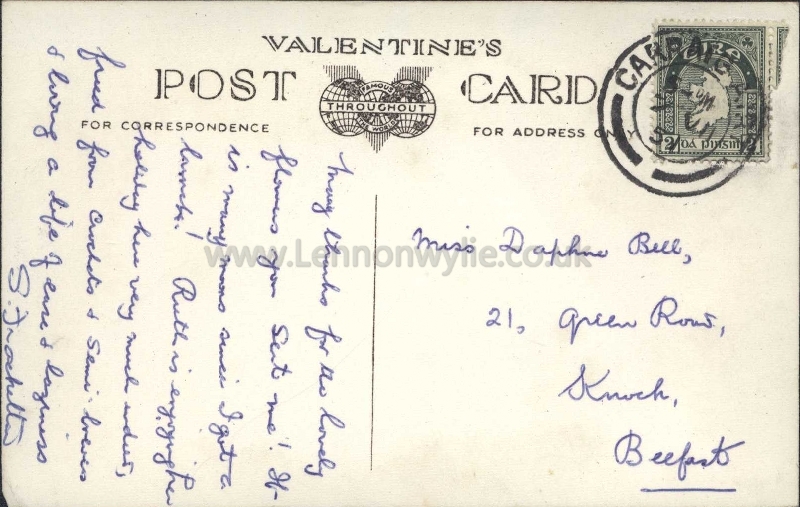 VALENTINE'S
POST CARD
FAMOUS
THROUGHOUT
THE WORLD
FOR CORRESPONDENCE
FOR ADDRESS ONLY
éIRe
2 DÁ PINGIN 2
CARRAIG
www.Lennonwylie.co.uk
Many thanks for the lovely
flowers you sent me! It
is many moons since I got a
bunch! Ruth is enjoying her
holiday here very much indeed,
freed from crochets & semi-breves
& living a life of ease & laziness
Miss Daphne Bell,
21, Green Road,
Knock,
Belfast